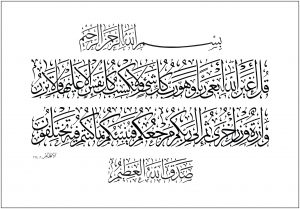 بسم الله الرحمن الرحيم
قل أغير الله أبغي ربا وهو رب كل شيء ولا تكسب كل نفس إلا عليها ولا تزر
وازرة وزر أخرى ثم إلى ربكم مرجعكم فينبئكم بما كنتم فيه تختلفون
صدق الله العظيم